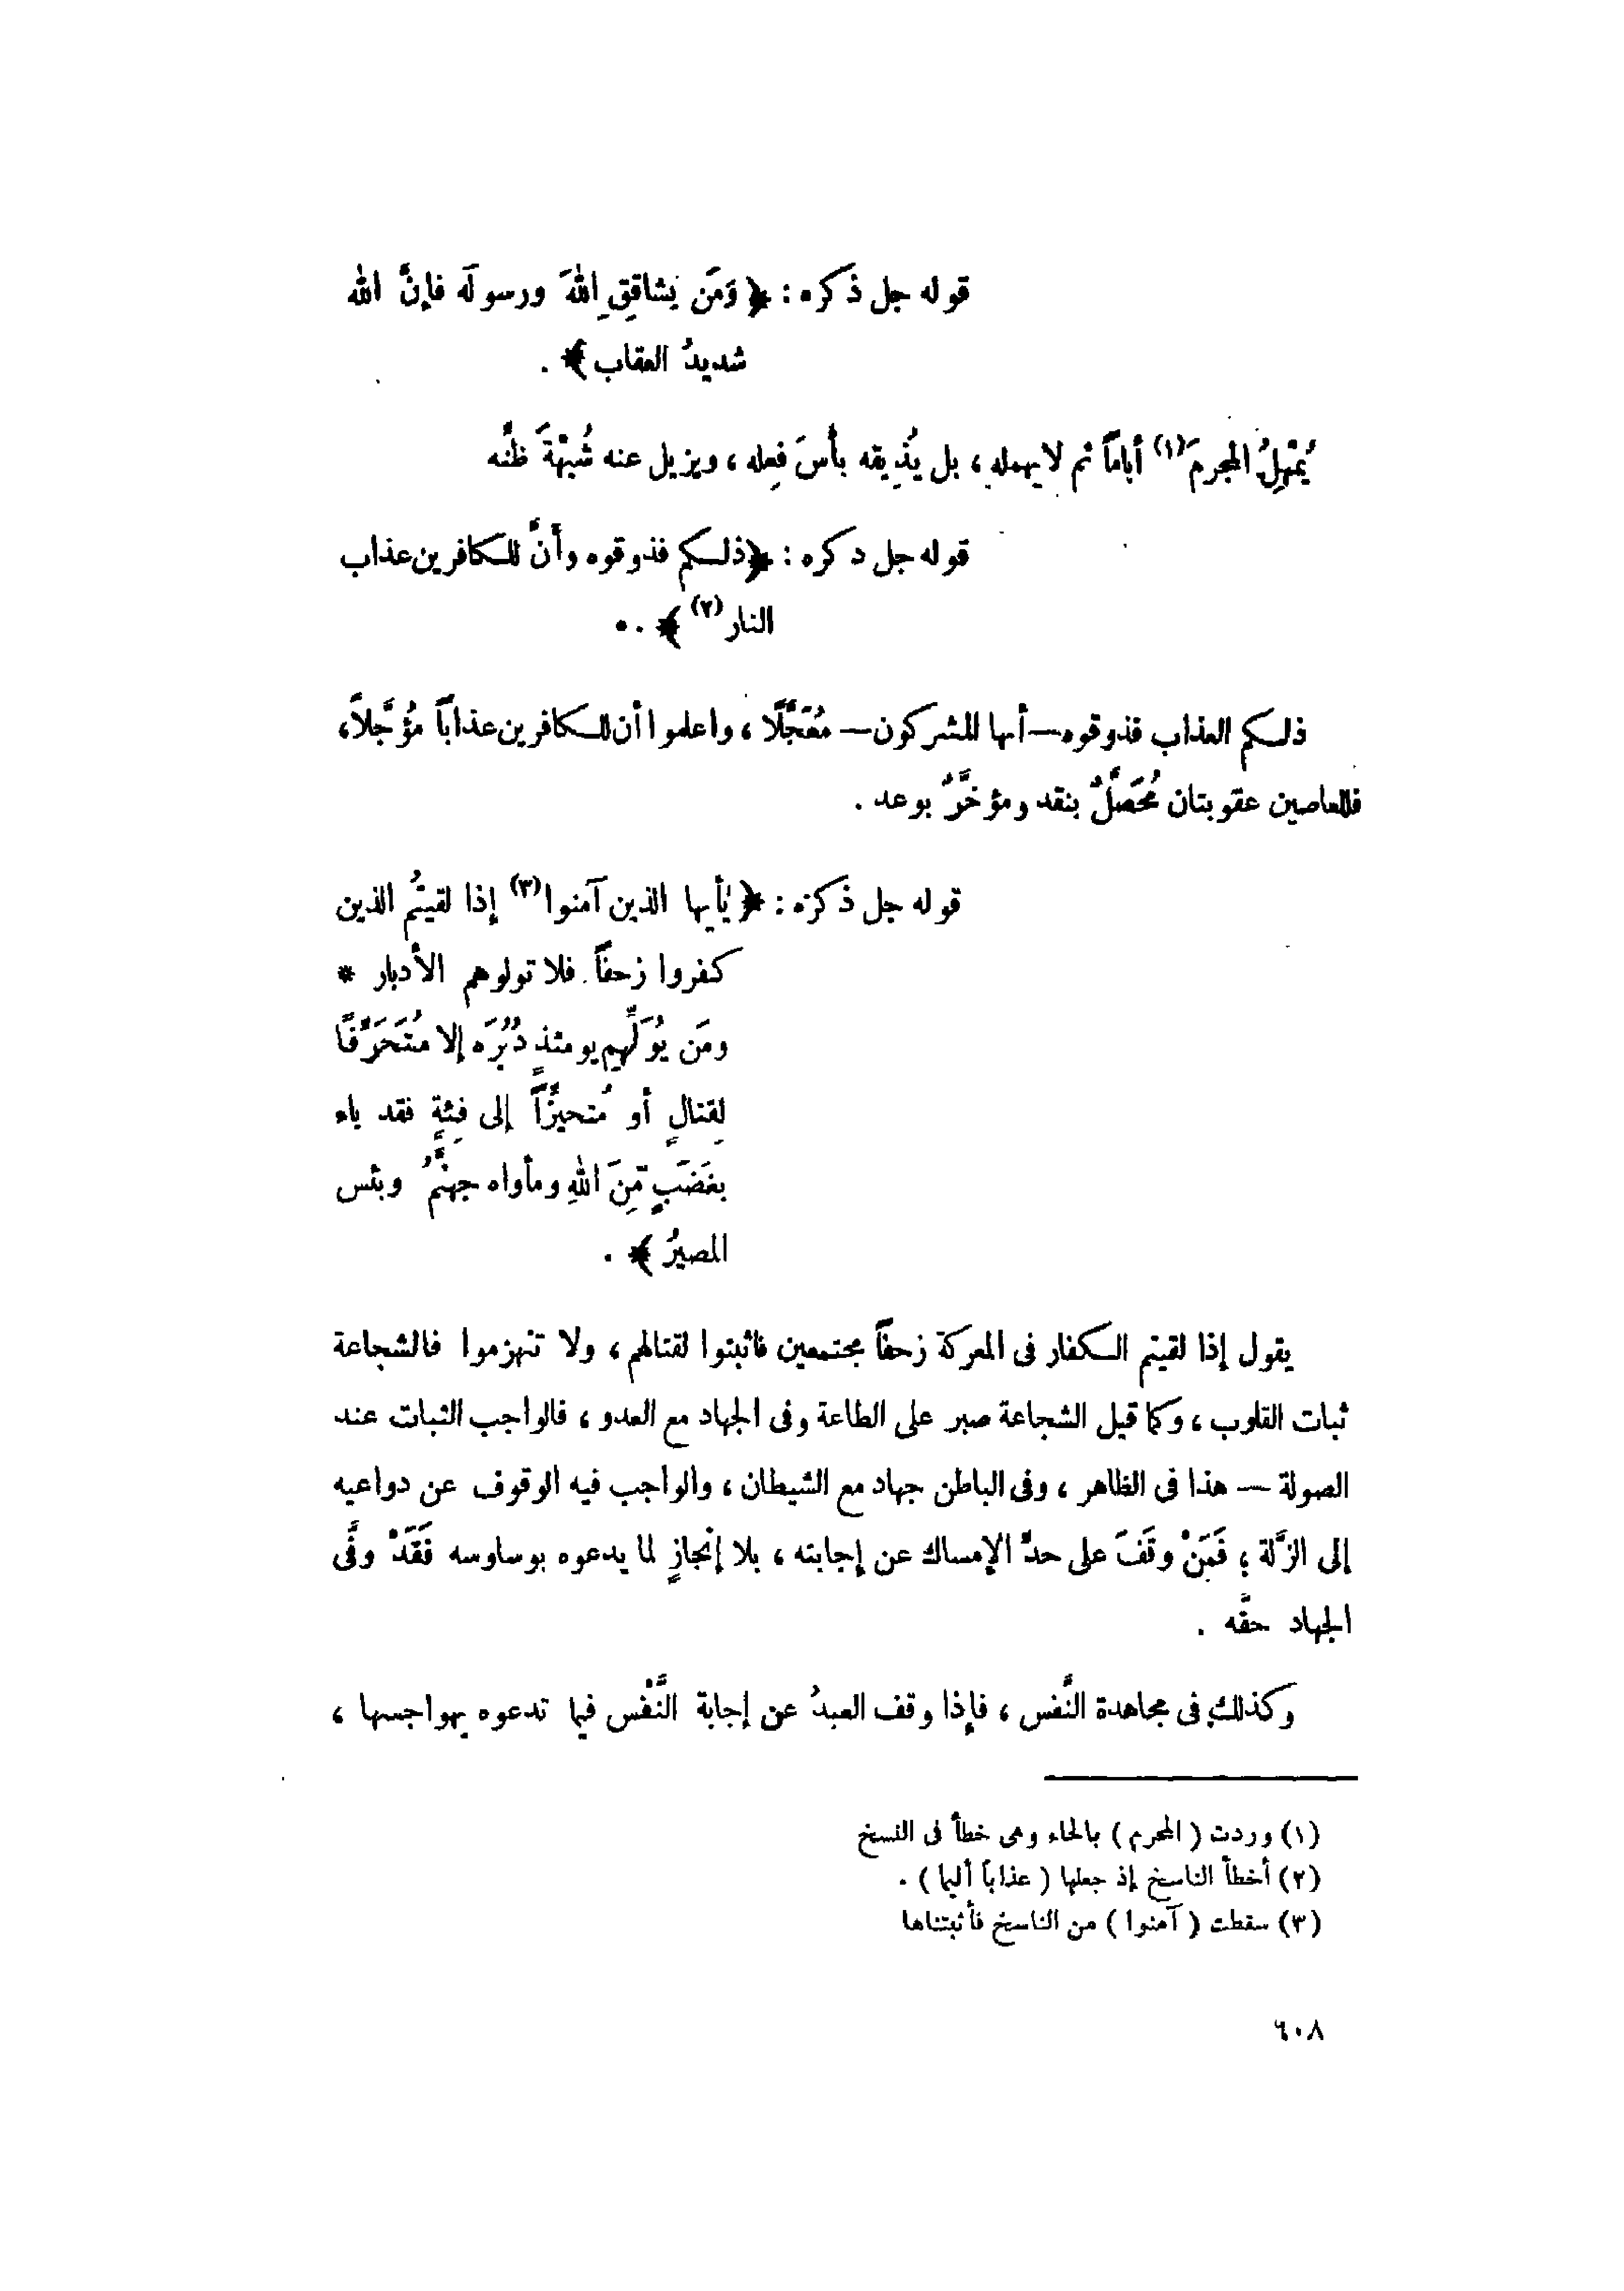 قوله جل ذكره : ﴿ وَمَن يشاقِقِ اللهَ ورسولَه فإنَّ الله
شديدُ العقاب ﴾ .
يُمْهِلُ المجرمَ(١) أياماً ثم لا يهمله ، بل يُذِيقه بأسَ فِعله ، ويزيل عنه شُبْهَةَ ظنِّه
قوله جل دكره : ﴿ ذلكم فذوقوه وأنَّ للكافرين عذاب
النار(٢) ﴾ .
ذلكم العذاب فذوقوه — أيها المشركون — مُعَجَّلًا ، واعلموا أن للكافرين عذاباً مُؤَجَّلاً ،
فللعاصين عقوبتان مُحَصَّلٌ بنقد ومؤخَّرٌ بوعد .
قوله جل ذكره : ﴿ يٰأيها الذين آمنوا(٣) إذا لقيتُم الذين
كفروا زحفاً فلا تولوهم الأدبار *
ومَن يُوَلِّهِم يومئذٍ دُبُرَه إلا مُتَحَرِّفًا
لِقتالٍ أو مُتحيِّزاً إلى فِئةٍ فقد باء
بغَضَبٍ مِّنَ اللهِ ومأواه جهنَّمُ وبئس
المصيرُ ﴾ .
يقول إذا لقيتم الكفار فى المعركة زحفاً مجتمعين فاثبتوا لقتالهم ، ولا تنهزموا فالشجاعة
ثبات القلوب ، وكما قيل الشجاعة صبر على الطاعة وفى الجهاد مع العدو ، فالواجب الثبات عند
الصولة — هذا فى الظاهر ، وفى الباطن جهاد مع الشيطان ، والواجب فيه الوقوف عن دواعيه
إلى الزَّلة ؛ فَمَنْ وقَفَ على حدِّ الإمساك عن إجابته ، بلا إنْجازٍ لما يدعوه بوساوسه فَقَدْ وفَّى
الجهاد حقَّه .
وكذلك فى مجاهدة النَّفس ، فإذا وقف العبدُ عن إجابة النَّفْس فيما تدعوه بهواجسها ،
(١) وردت ( المحرم ) بالحاء وهى خطأ فى النسخ
(٢) أخطأ الناسخ إذ جعلها ( عذاباً أليما ) .
(٣) سقطت ( آمنوا ) من الناسخ فأثبتناها
٦٠٨